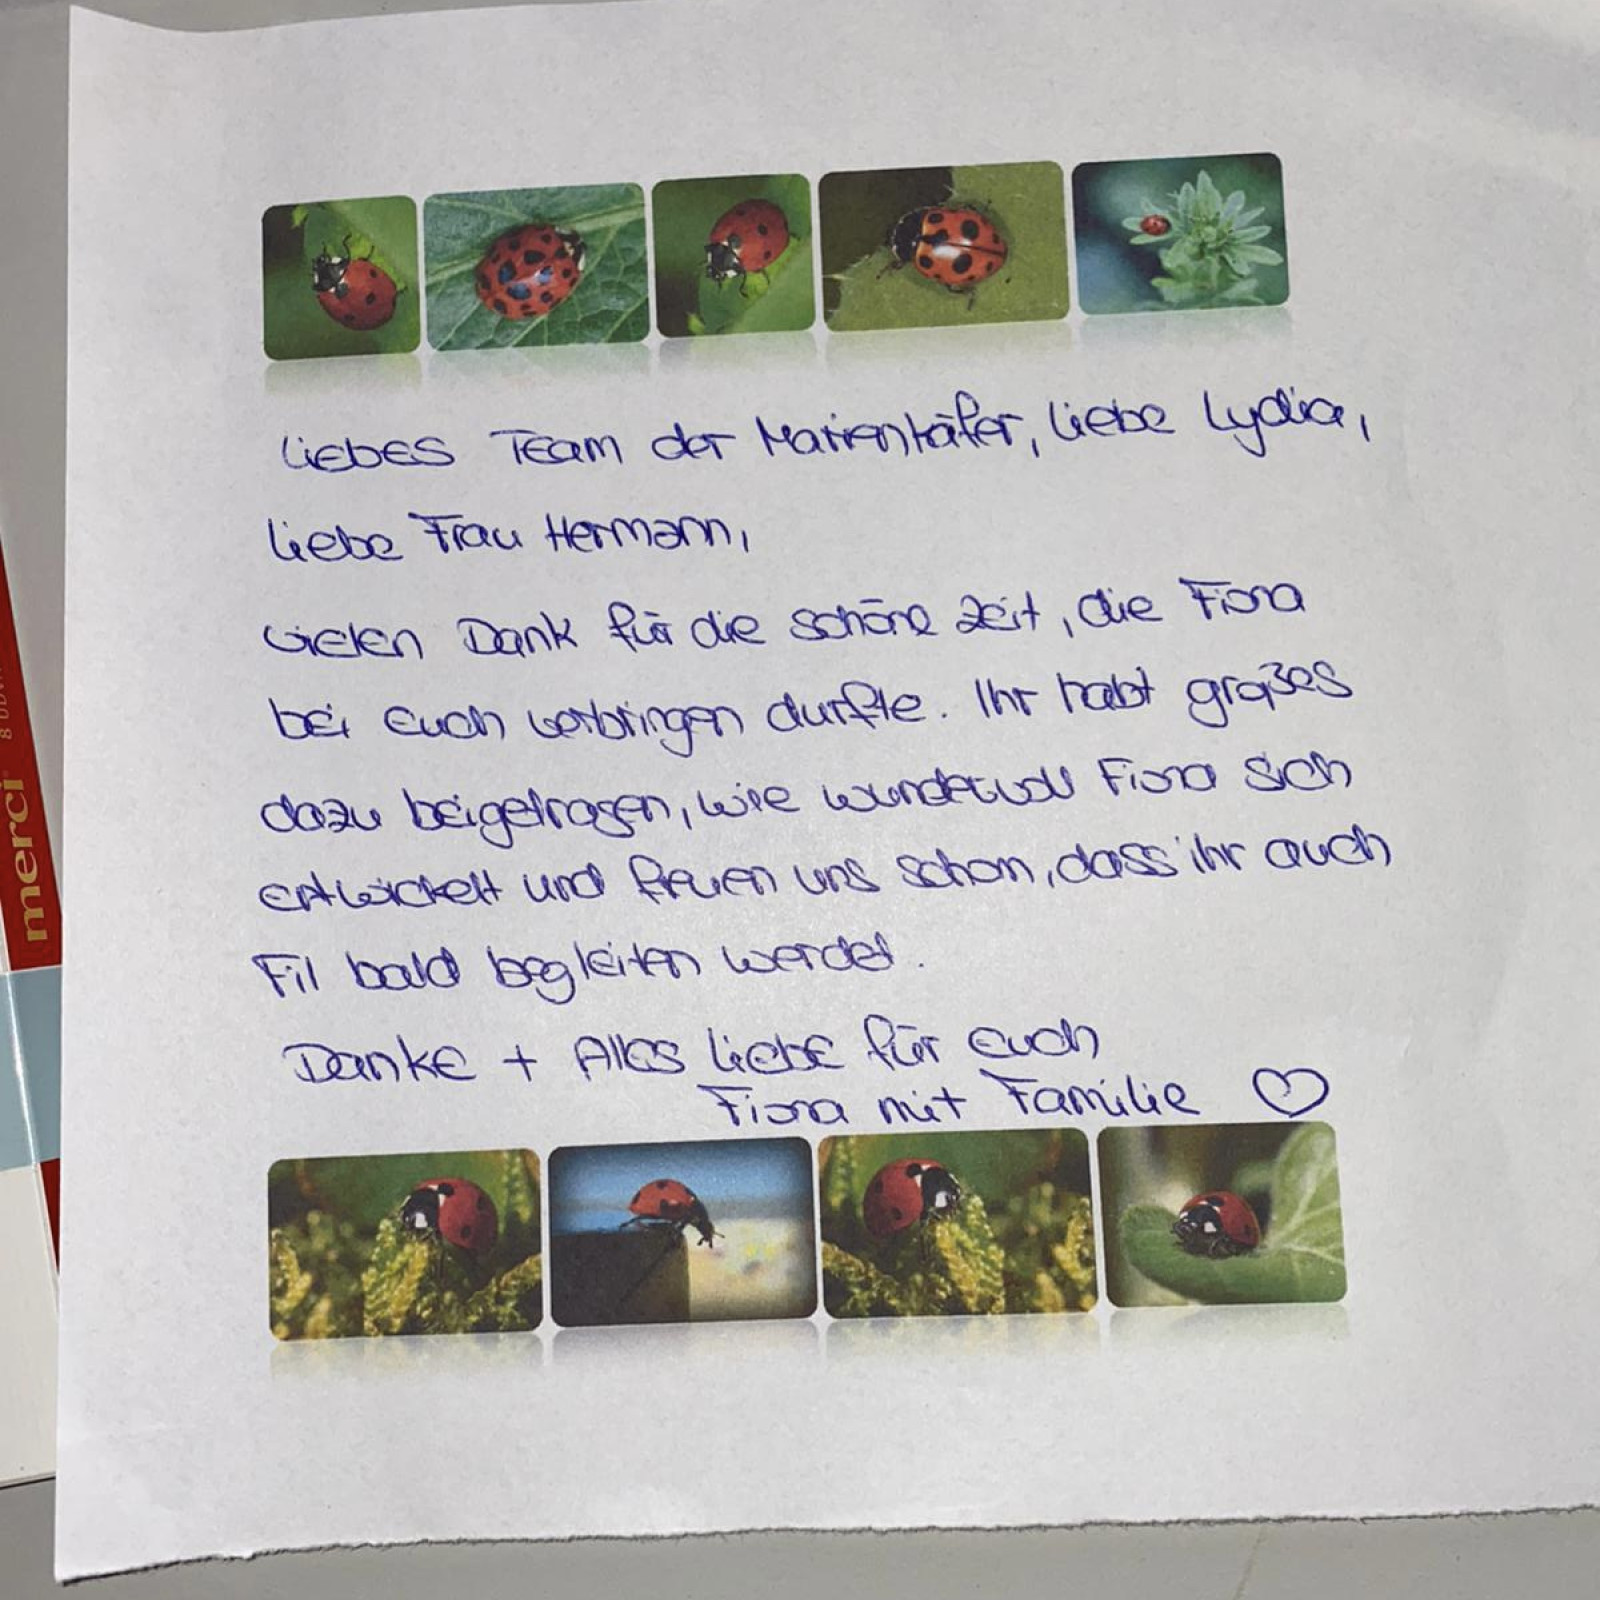 Liebes Team der Marienkäfer, liebe Lydia,
liebe Frau Hermann,
vielen Dank für die schöne Zeit, die Fiona
bei euch verbringen durfte. Ihr habt großes
dazu beigetragen, wie wundervoll Fiona sich
entwickelt und freuen uns schon, dass ihr auch
Fil bald begleiten werdet.
Danke + Alles Liebe für euch
Fiona mit Familie
merci